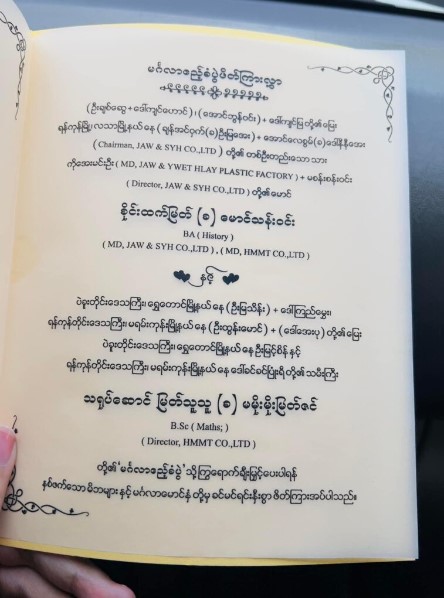 မင်္ဂလာဧည့်ခံပွဲဖိတ်ကြားလွှာ
(ဦးချစ်ဆွေ + ဒေါ်ကျင်ဟောင်) ၊ (အောင်ဘွန်ဝင်း) + ဒေါ်ကျင်မြ တို့၏မြေး
ရန်ကုန်မြို့၊ လသာမြို့နယ်နေ (ချန်အင်ဝှက်)(ခ)ဦးမြအေး + အောင်လေစွမ်(ခ)ဒေါ်နီနီအေး
( Chairman, JAW & SYH CO.,LTD ) တို့၏ တစ်ဦးတည်းသော သား
ကိုအေးမင်းဦး ( MD, JAW & YWET HLAY PLASTIC FACTORY ) + မစန်းစန်းဝင်း
( Director, JAW & SYH CO.,LTD ) တို့၏မောင်
စိုင်းထက်မြတ် (ခ) မောင်သန်းဝင်း
BA ( History )
( MD, JAW & SYH CO.,LTD ) , ( MD, HMMT CO.,LTD )
နှင့်
ပဲခူးတိုင်းဒေသကြီး၊ ရွှေတောင်မြို့နယ်နေ (ဦးမြသိန်း) + ဒေါ်ကြည်မွှေး၊
ရန်ကုန်တိုင်းဒေသကြီး၊ မရမ်းကုန်းမြို့နယ်နေ (ဦးထွန်းမောင်) + (ဒေါ်အေးပု) တို့၏မြေး
ပဲခူးတိုင်းဒေသကြီး၊ ရွှေတောင်မြို့နယ်နေ ဦးမြင့်စိန် နှင့်
ရန်ကုန်တိုင်းဒေသကြီး၊ မရမ်းကုန်းမြို့နယ်နေ ဒေါ်ခင်ခင်ပြုံးရီ တို့၏ သမီးကြီး
သရုပ်ဆောင် မြတ်သူသူ (ခ) မမိုးမိုးမြတ်ဇင်
B.Sc ( Maths; )
( Director, HMMT CO.,LTD )
တို့၏ 'မင်္ဂလာဧည့်ခံပွဲ' သို့ကြွရောက်ချီးမြှင့်ပေးပါရန်
နှစ်ဖက်သော မိဘများ နှင့် မင်္ဂလာမောင်နှံ တို့မှ ခင်မင်ရင်းနှီးစွာ ဖိတ်ကြားအပ်ပါသည်။